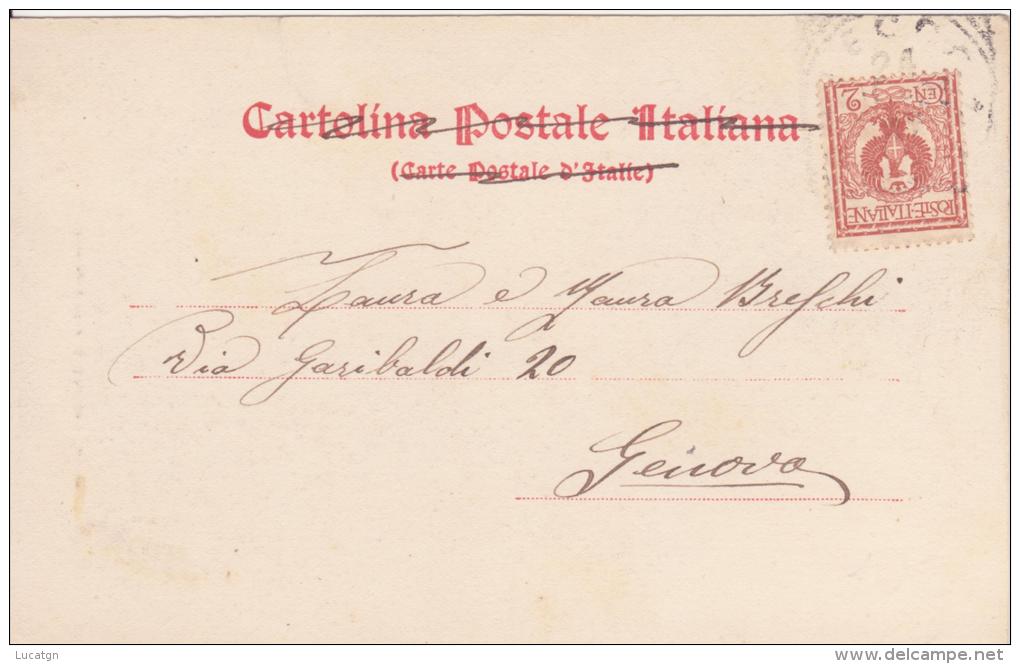 Cartolina Postale Italiana
(Carte Postale d'Italie)
CEN 2
POSTE·ITALIANE
Laura e Maura Breschi
Via Garibaldi 20
Genova
Lucatgn
www.delcampe.net